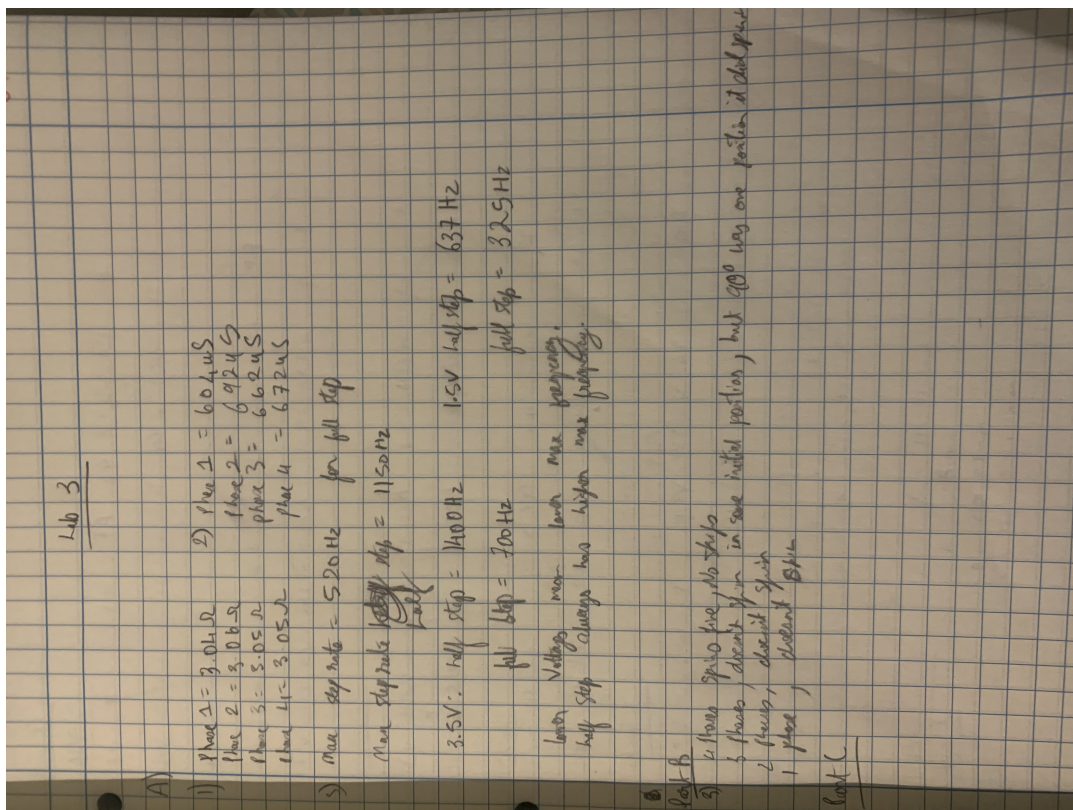 Lab 3
A)
1) Phase 1 = 3.04Ω
Phase 2 = 3.06Ω
Phase 3 = 3.05Ω
phase 4 = 3.05Ω
2) Phase 1 = 604uS
Phase 2 = 692uS
phase 3 = 662uS
phase 4 = 672uS
3) Max step rate = 520Hz for full step
Max step rate half step = 1150Hz
3.5V: half step = 1400Hz 1.5V half step = 637Hz
full step = 700Hz full step = 325Hz
lower Voltage mean lower max frequency.
half step always has higher max frequency.
Part B
3) 4 Phases spins fine, No skips
3 phases, doesn't spin in some initial position, but 90° was one position it did spin
2 phases, doesn't spin
1 phase, doesnt spin
Part C